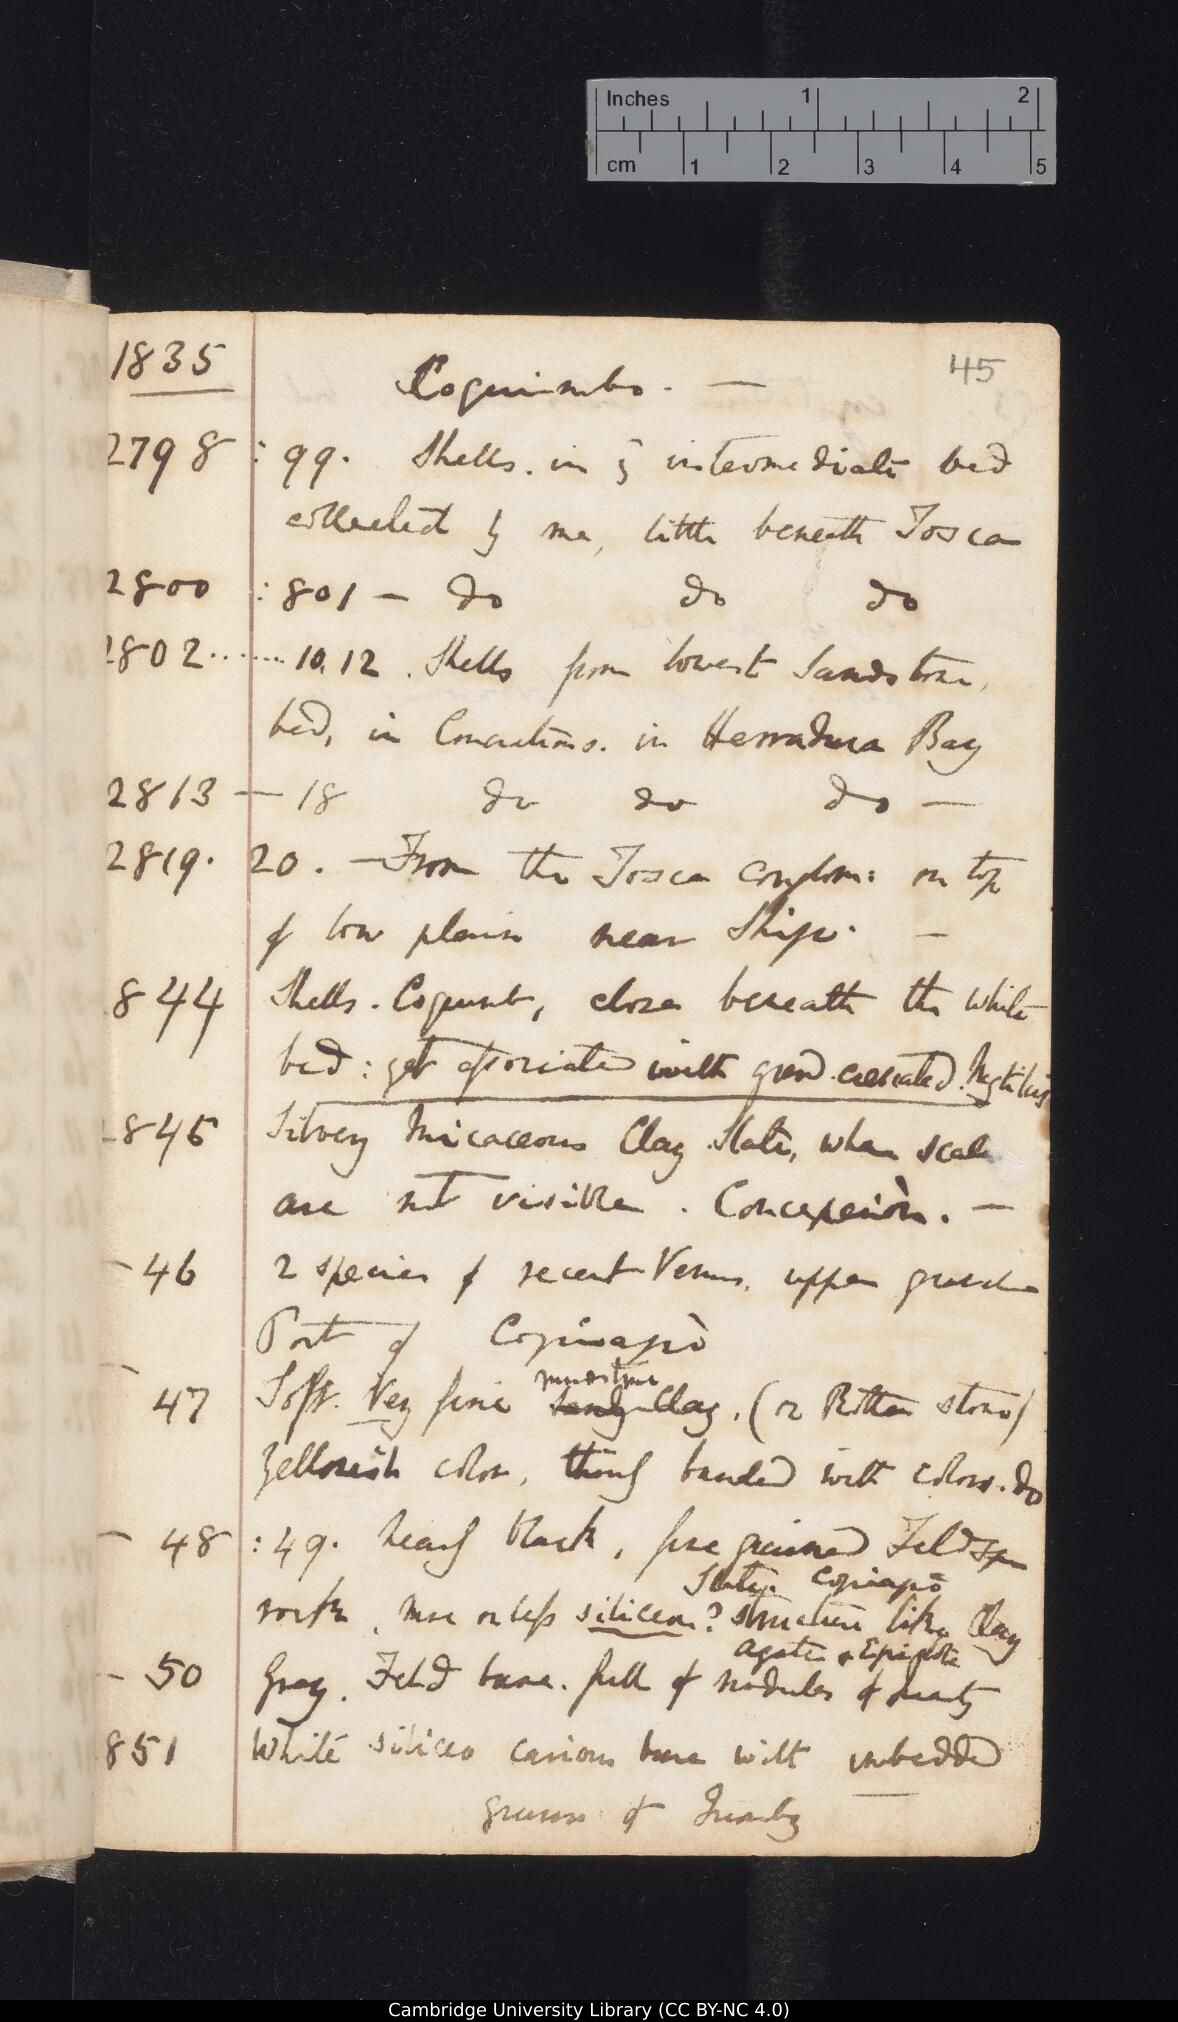 Inches 1 2
cm 1 2 3 4 5
1835 Coquimbo. — 45
2798 : 99. Shells. in ye intermediate bed
collected by me, little beneath Tosca
2800 : 801 — do do do
2802....... 10.12. Shells from lowest Sandstone,
bed, in Concretions. in Herradura Bay
2813 — 18 do do do —
2819. 20. — From the Tosca conglom: on top
of low plain near Ship. —
844 Shells. Coquimb, close beneath the white
bed: yet associated with grand Mytilus
2845 Silvery Micaceous Clay Slate, when scale
are not visible. Concepcion. —
— 46 2 species of recent Venus. upper
Port of Copiapò
mudstone
— 47 Soft. Very fine sandy Clay. (or Rotten stone)
Yellowish color, thinly banded with colors. do
— 48 : 49. nearly black, fine grained Feldspar
Slate. Copiapò
rock, more or less siliceous? structure like Clay
agate & Epidote
— 50 Grey. Feld base. full of nodules of quartz
851 White siliceo carious base with imbedded
grains of Quartz
Cambridge University Library (CC BY-NC 4.0)